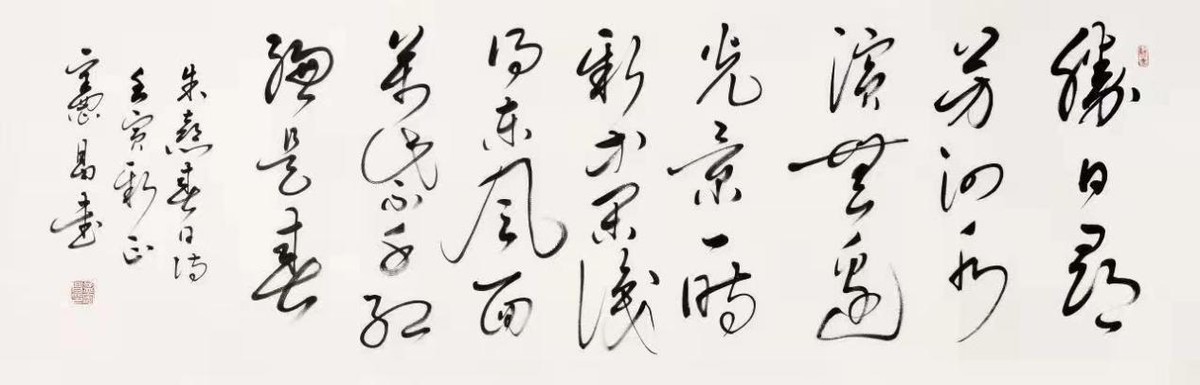 勝日尋
芳泗水
濱無邊
光景一時
新等閑識
得東風面
萬紫千紅
總是春
朱熹春日詩
壬寅新正
憲昌書